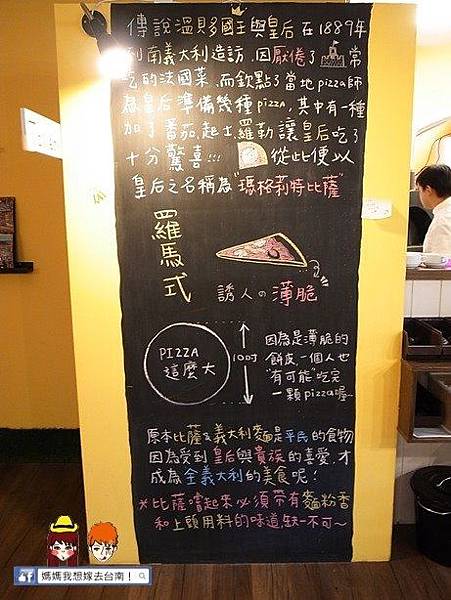 傳說溫貝多國王與皇后在1889年
到南義大利造訪,因厭倦了常
吃的法國菜,而欽點了當地pizza師
為皇后準備幾種pizza,其中有一種
加了蕃茄.起士.羅勒讓皇后吃了
十分驚喜!!! 從此便以
皇后之名稱為"瑪格莉特比薩"
羅馬式
誘人の薄脆
PIZZA
這麼大
10吋
因為是薄脆的
餅皮,一個人也
"有可能"吃完
一顆pizza喔~
原本比薩&義大利麵是平民的食物
因為受到皇后與貴族的喜愛,才
成為全義大利的美食呢!
*比薩嚐起來必須帶有麵粉香
和上頭用料的味道,缺一不可~
媽媽我想嫁去台南!